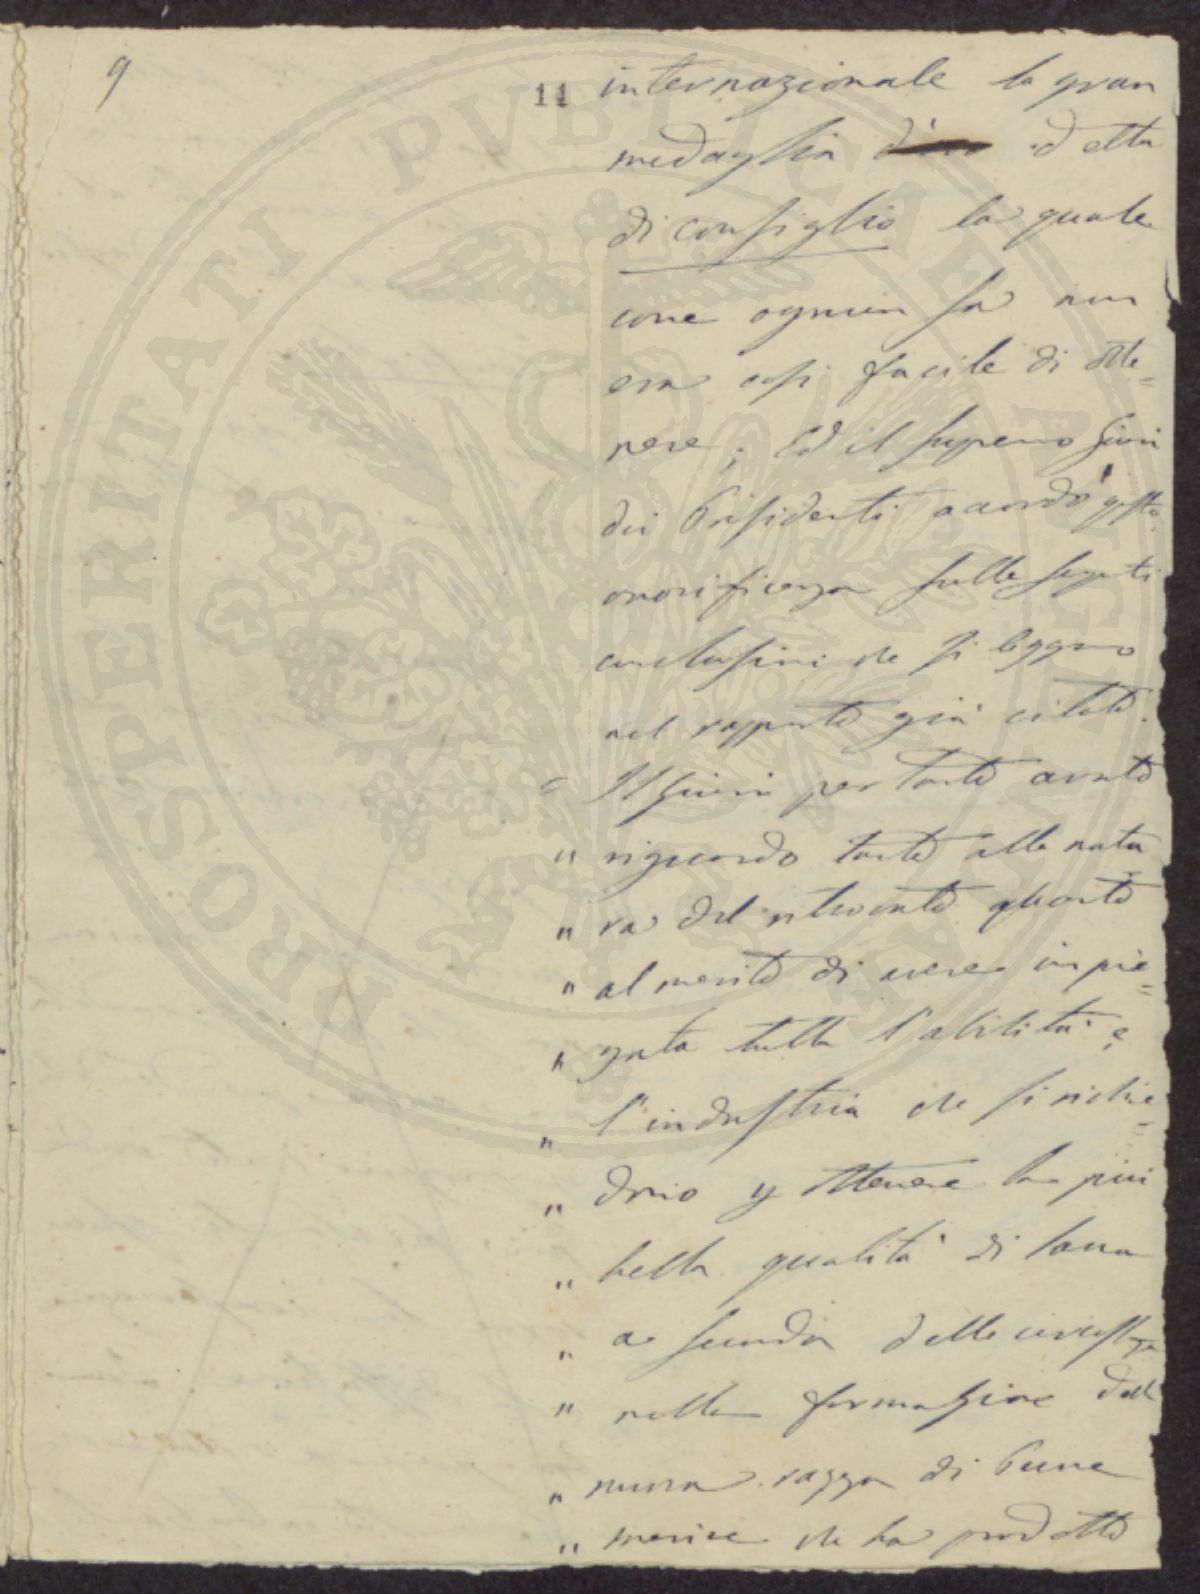 9
11
internazionale la gran
medaglia d'oro detta
di consiglio la quale
come ognun sa non
era così facile di otte=
nere; Ed il supremo Giuri
dei Presidenti accordò questa
onorificenza sulle seguenti
conclusioni che si leggono
nel rapporto già citato.
= Il Giuri per tanto avuto
" riguardo tanto alla natu
" ra del ritrovato quanto
" al merito di avere impie=
" gata tutta l'abilità e
" l'industria che si richie=
" dono p ottenere la più
" bella qualità di lana
" a seconda delle circostze
" nella formazione della
" nuova razza di Pecore
" merine che ha prodotto
PROSPERITATI PVBLICAE AVGENDAE